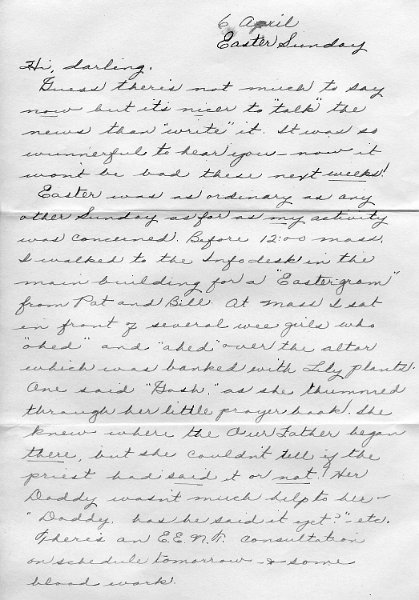 6 April
Easter Sunday
Hi, darling.
Guess there's not much to say
now but it's nicer to "talk" the
news than "write" it. It was so
wunnerful to hear you - now it
won't be bad these next weeks!
Easter was as ordinary as any
other Sunday as far as my activity
was concerned. Before 12:00 mass,
I walked to the Info desk in the
main building for a "Eastergram"
from Pat and Bill. At Mass I sat
in front of several wee girls who
"ohed" and "ahed" over the altar
which was banked with Lily plants.
One said "Gosh," as she thummed
through her little prayer book. She
knew where the Our Father began
there, but she couldn't tell if the
priest had said it or not! Her
Daddy wasn't much help to her -
"Daddy, has he said it yet?" - etc.
There's an E.E.N.T. consultation
on schedule tomorrow - & some
blood work.